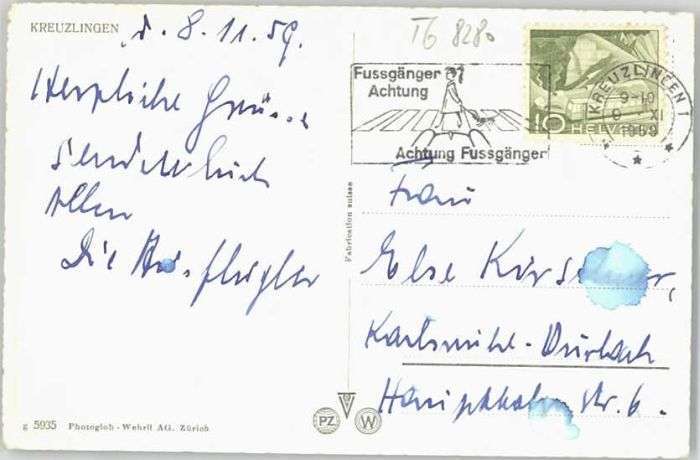 KREUZLINGEN, d. 8.11.59.
Herzliche Grüsse
sendet Euch
Allen
Die Ausflügler
TG 8280
Fussgänger
Achtung
Achtung Fussgänger
10 HELVETIA
KREUZLINGEN 1
9-10
9 XI
1959
Fabrication suisse
Frau
Else
Karlsruhe-Durlach
Str. 6.
g 5935 Photoglob-Wehrli AG. Zürich
PZ W